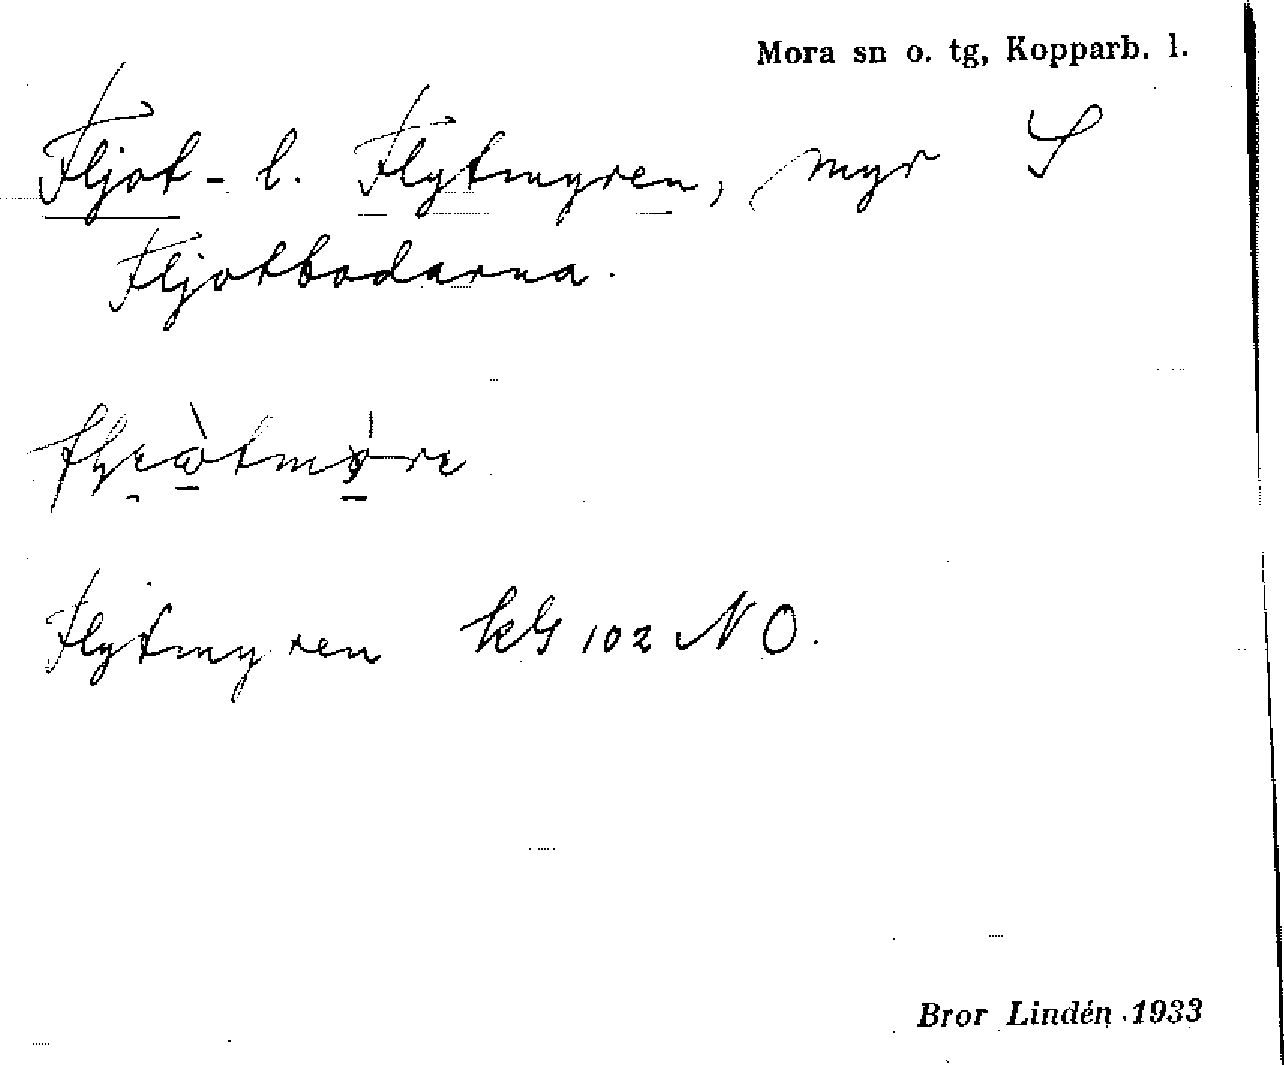 Mora sn o. tg, Kopparb. l.
Fljot- l. Flytmyren, myr S
Fljotbodarna.
Flytmyren kG 102 NO.
Bror Lindén 1933